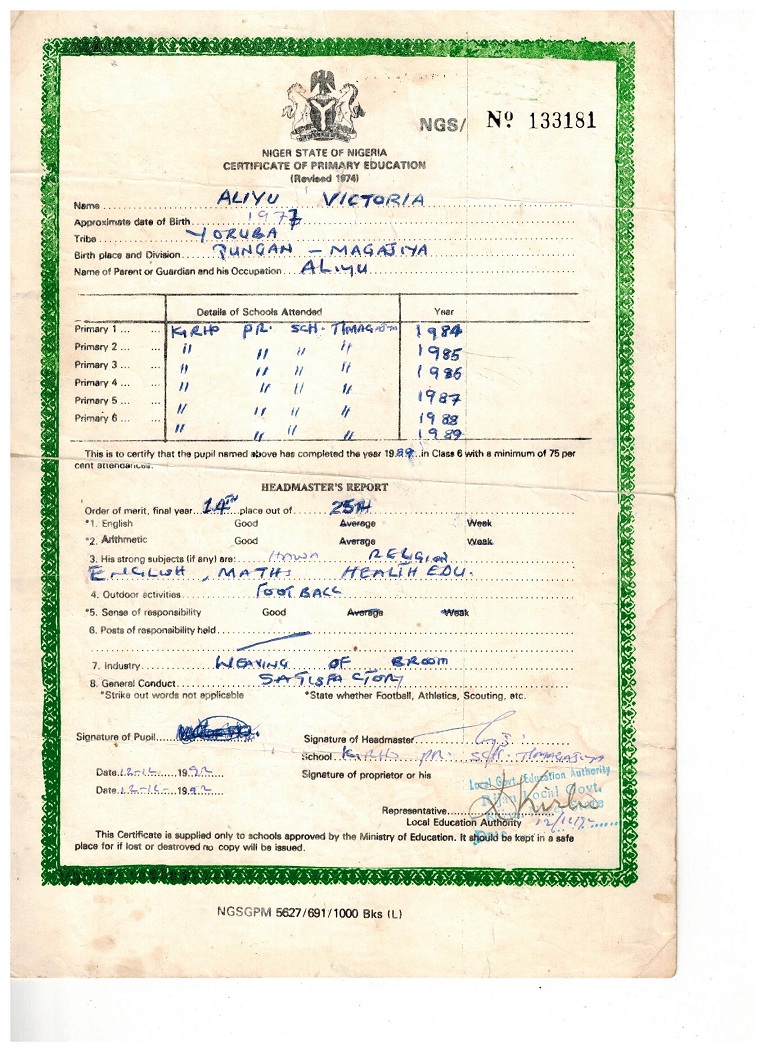 NGS/ Nº 133181
NIGER STATE OF NIGERIA
CERTIFICATE OF PRIMARY EDUCATION
(Revised 1974)
Name ALIYU VICTORIA
Approximate date of Birth 1977
Tribe YORUBA
Birth place and Division TUNGAN – MAGAJIYA
Name of Parent or Guardian and his Occupation ALIYU
Details of Schools Attended Year
Primary 1 ... ... PR. SCH. T/MAGAJIYA 1984
Primary 2 ... ... " " " " 1985
Primary 3 ... ... " " " " 1986
Primary 4 ... ... " " " " 1987
Primary 5 ... ... " " " " 1988
Primary 6 ... ... " " " " 1989
This is to certify that the pupil named above has completed the year 1989 in Class 6 with a minimum of 75 per
cent attendances.
HEADMASTER'S REPORT
Order of merit, final year 14TH place out of 25TH
*1. English Good Average Weak
*2. Arithmetic Good Average Weak
3. His strong subjects (if any) are: RELIGION
ENGLISH, MATHS HEALTH EDU.
4. Outdoor activities FOOTBALL
*5. Sense of responsibility Good Average Weak
6. Posts of responsibility held
7. Industry WEAVING OF BROOM
8. General Conduct SATISFACTORY
*Strike out words not applicable *State whether Football, Athletics, Scouting, etc.
Signature of Pupil Signature of Headmaster
School PR. SCH. T/MAGAJIYA
Date 12-12- 1992 Signature of proprietor or his
Date 12-12- 1992
Local Govt. Education Authority
Local Govt.
Representative
Local Education Authority
This Certificate is supplied only to schools approved by the Ministry of Education. It should be kept in a safe
place for if lost or destroyed no copy will be issued.
NGSGPM 5627/691/1000 Bks (L)